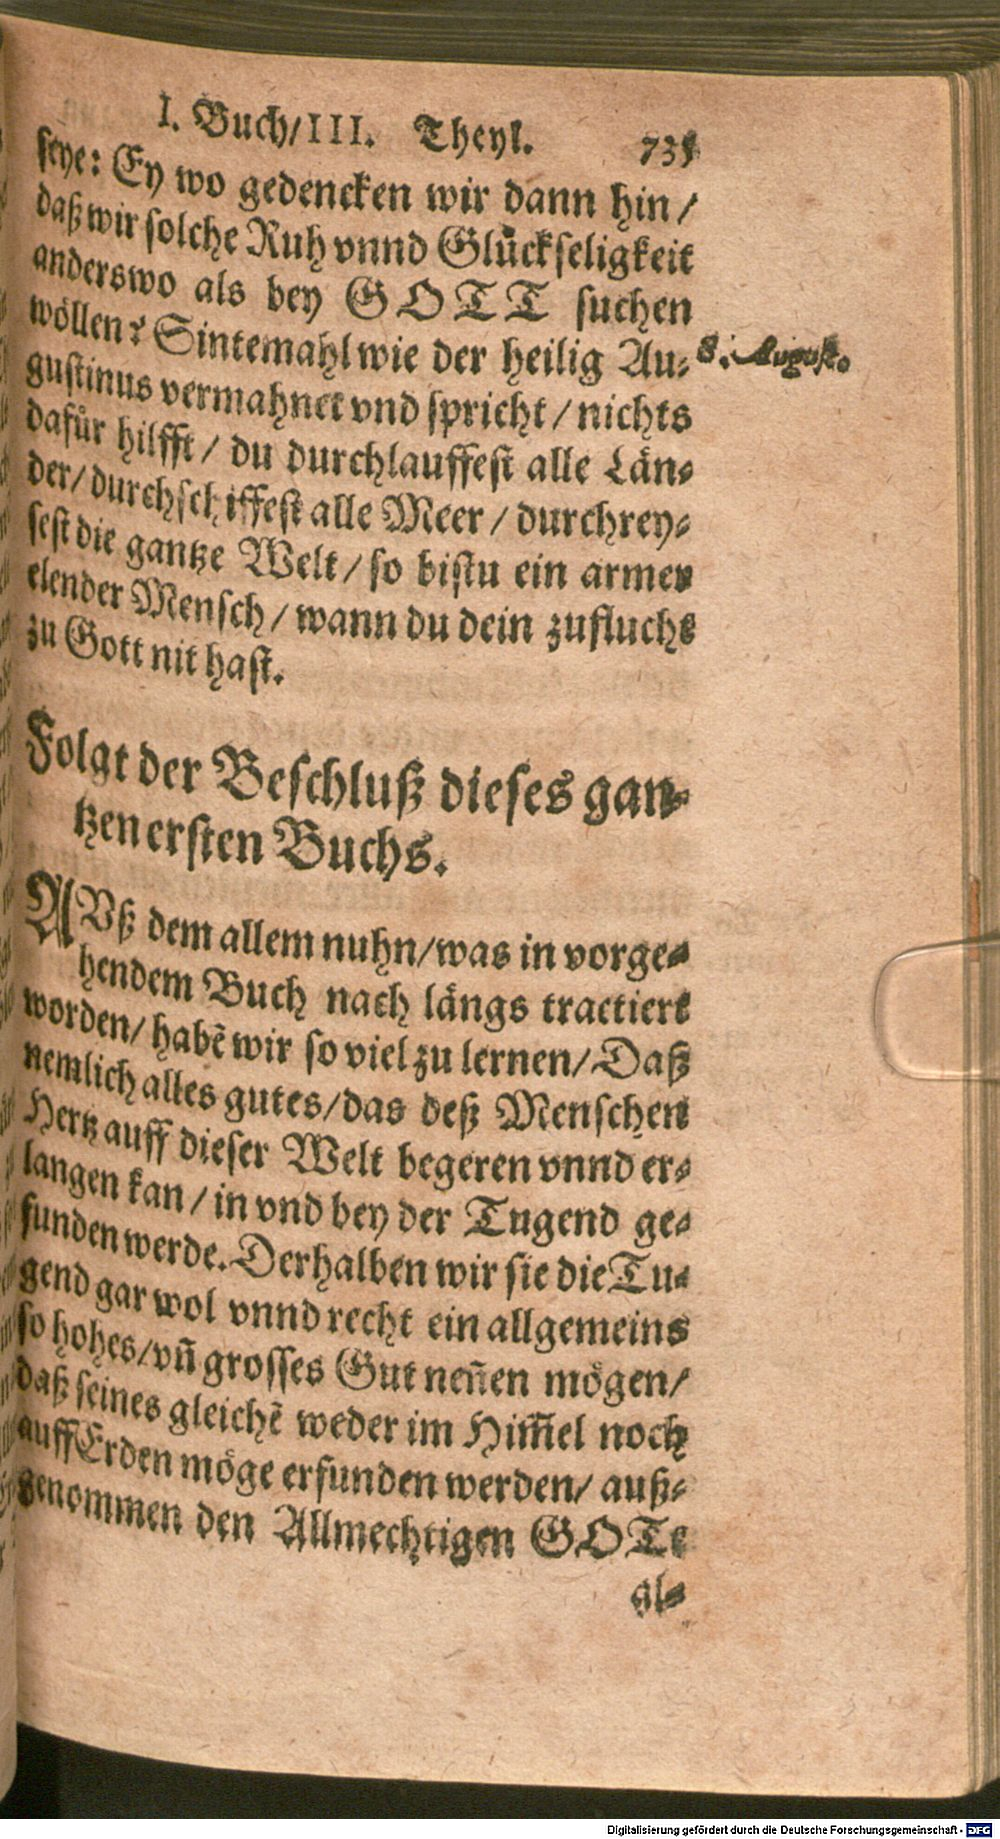 I. Buch/III. Theyl. 735
seye: Ey wo gedencken wir dann hin/
daß wir solche Ruh vnnd Glückseligkeit
anderswo als bey GOTT suchen
wöllen? Sintemahl wie der heilig Au-
S. August.
gustinus vermahnet vnd spricht/ nichts
dafür hilfft/ du durchlauffest alle Län-
der/ durchschiffest alle Meer/ durchrey-
sest die gantze Welt/ so bistu ein armer
elender Mensch/ wann du dein zufluchs
zu Gott nit hast.
Folgt der Beschluß dieses gan-
tzen ersten Buchs.
AVß dem allem nuhn/was in vorge-
hendem Buch nach längs tractiert
worden/ habē wir so viel zu lernen/ Daß
nemlich alles gutes/das deß Menschen
Hertz auff dieser Welt begeren vnnd er-
langen kan/ in vnd bey der Tugend ge-
funden werde. Derhalben wir sie die Tu-
gend gar wol vnnd recht ein allgemeins
so hohes/vñ grosses Gut neñen mögen/
daß seines gleichē weder im Him̃el noch
auff Erden möge erfunden werden/ auß-
genommen den Allmechtigen GOTt
al-
Digitalisierung gefördert durch die Deutsche Forschungsgemeinschaft - DFG